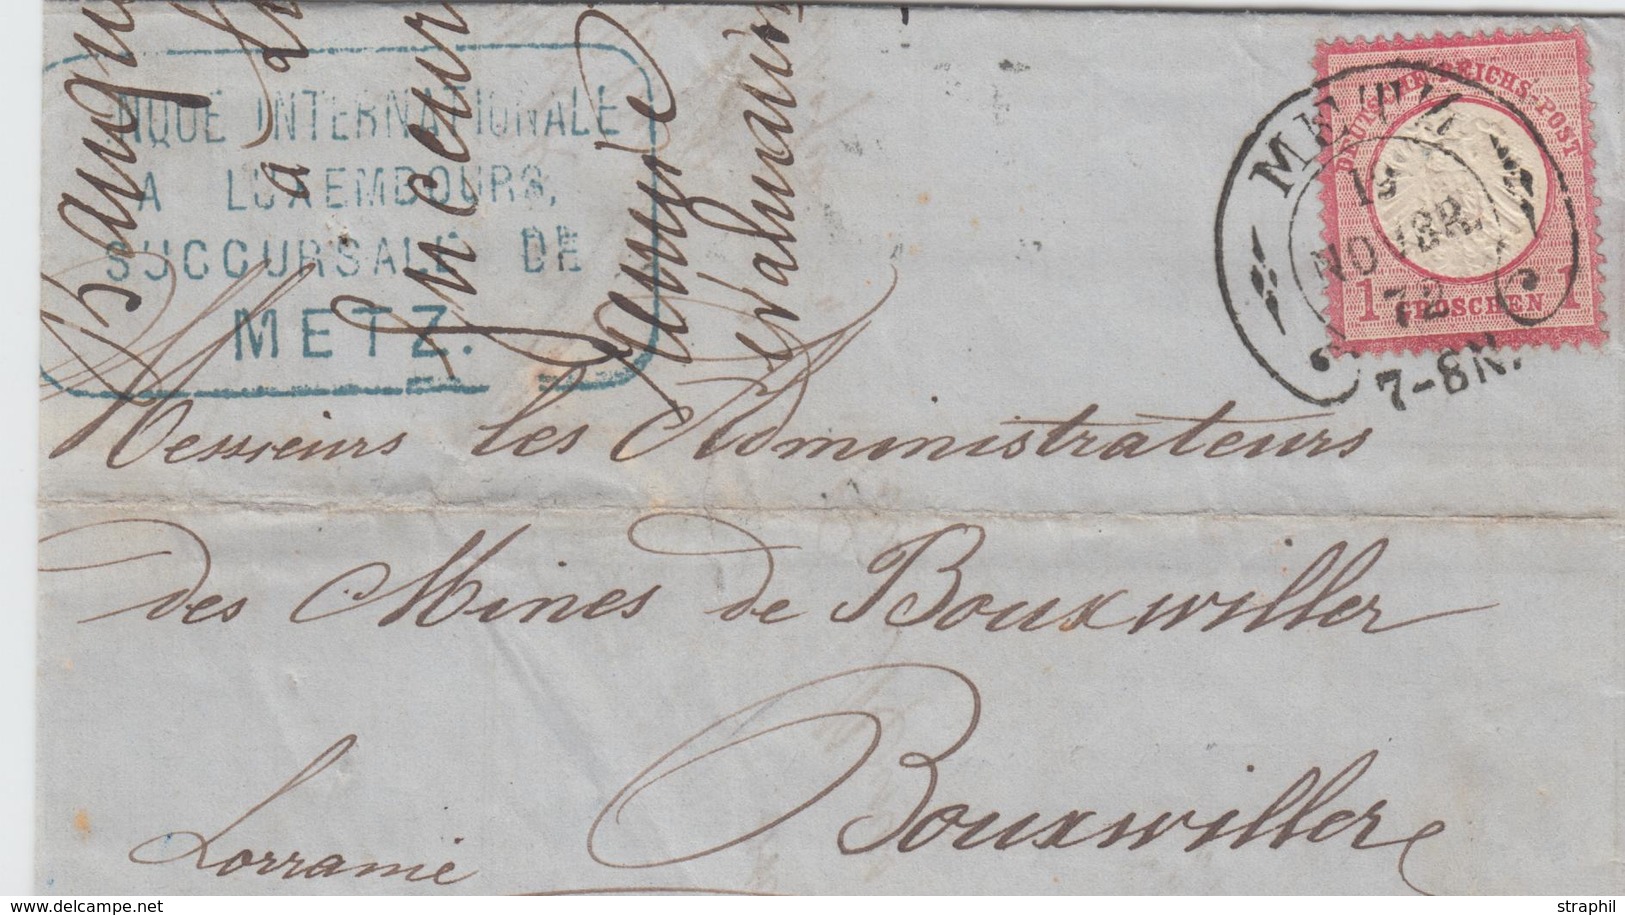 NQUE INTERNATIONALE
A LUXEMBOURG,
SUCCURSALE DE
METZ.
DEUTSCHE REICHS-POST
1 GROSCHEN 1
METZ
NOVBR.
72
7-8N.
Messieurs les Administrateurs
des Mines de Bouxwiller
Bouxwiller
Lorraine
straphil